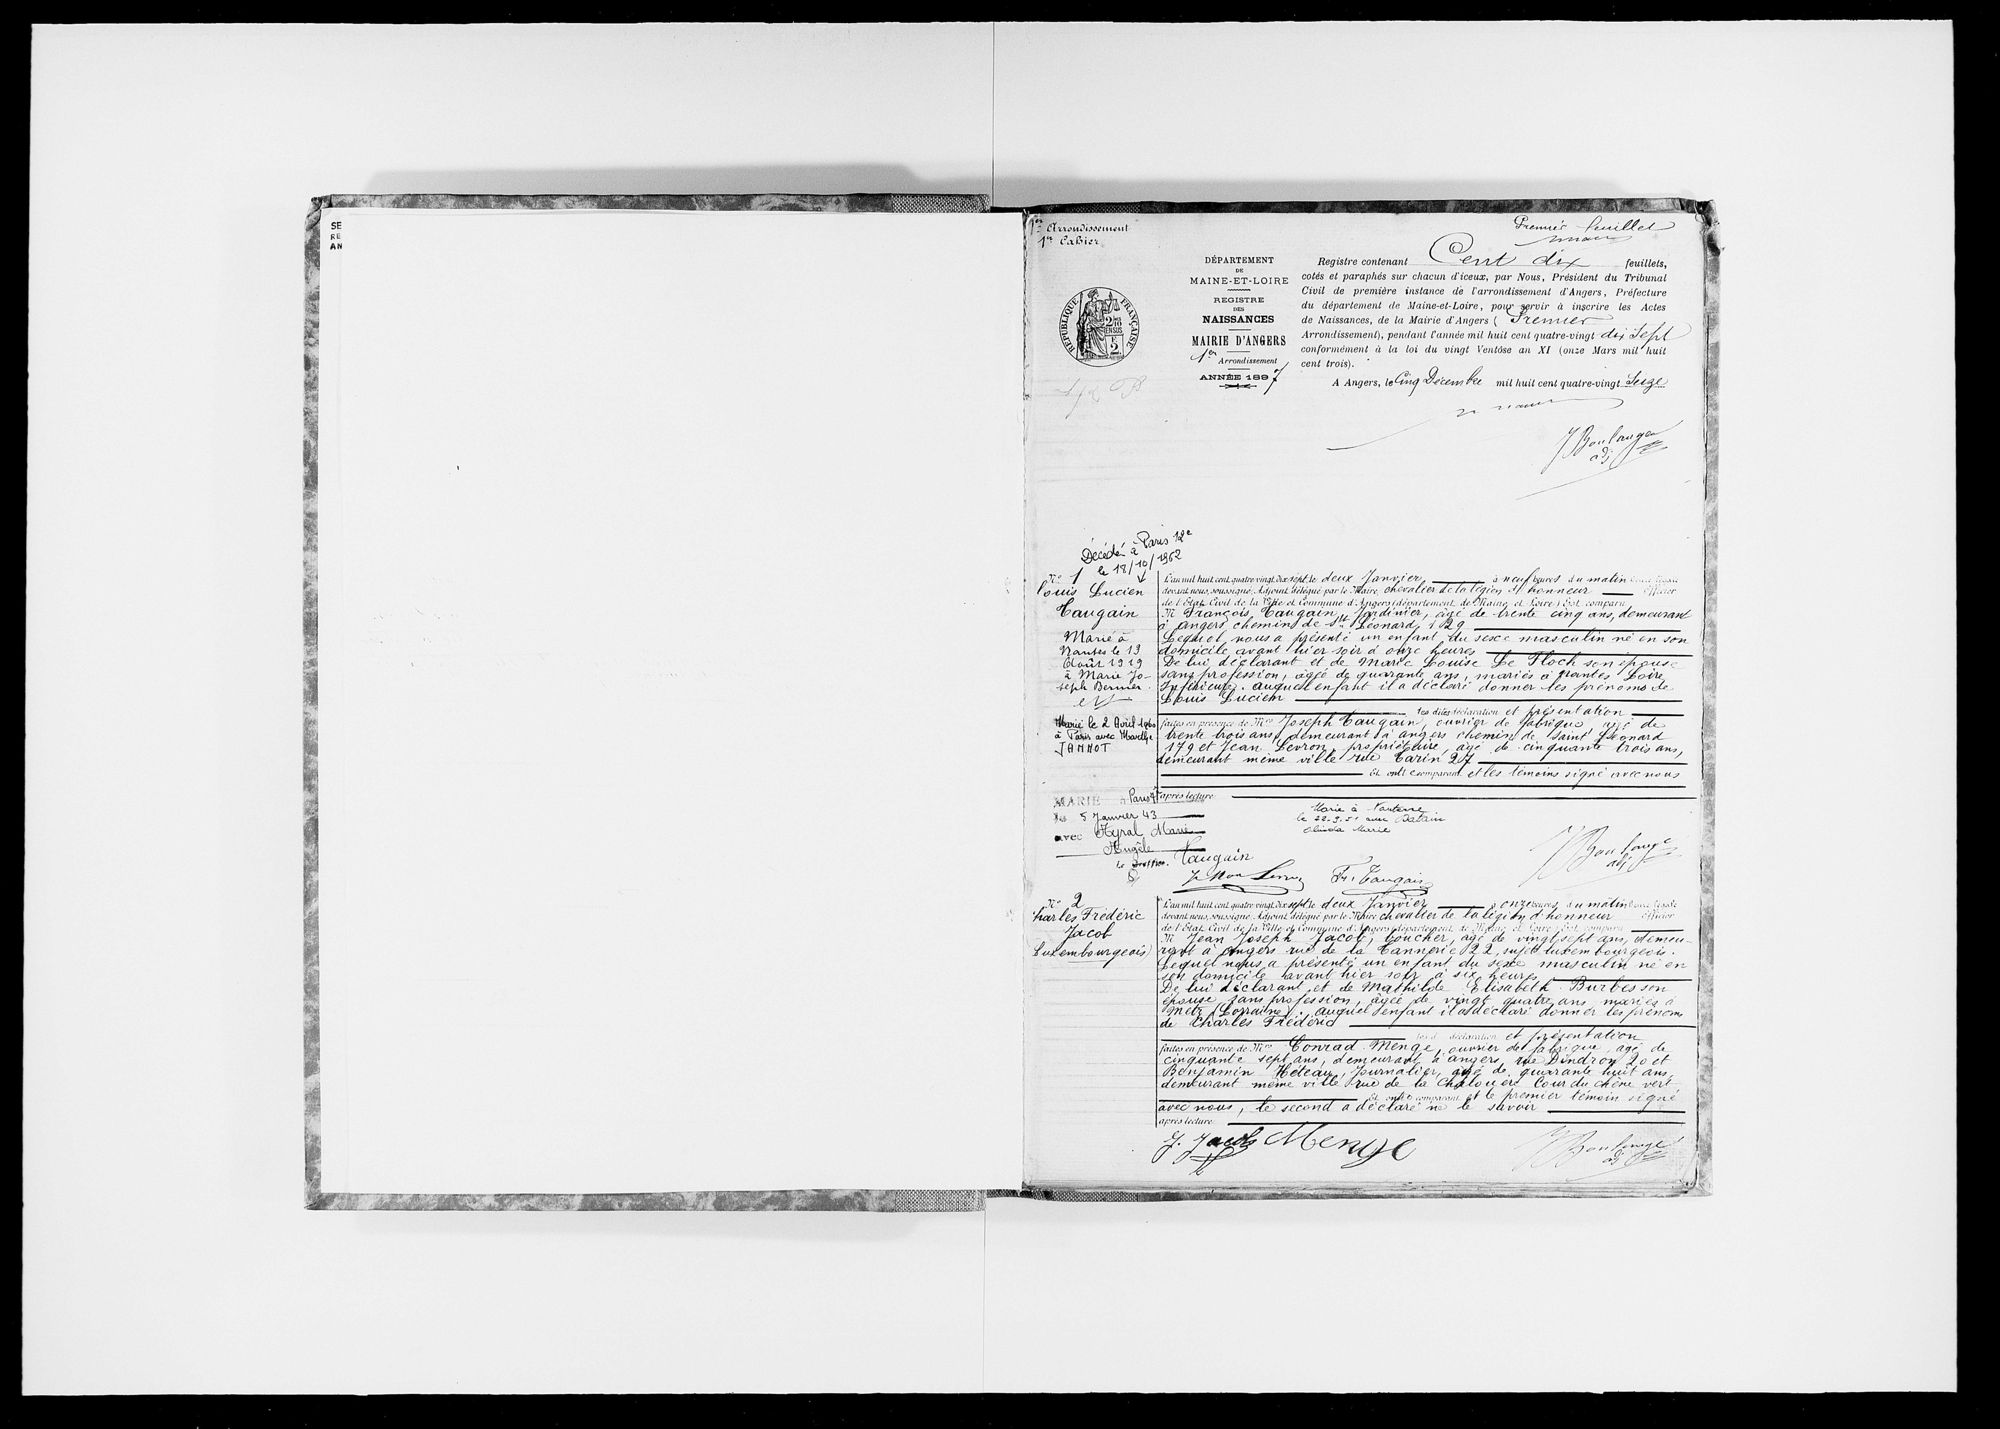 SE
RE
AN
1er Arrondissement
1er Cahier
Premier feuillet
DÉPARTEMENT
DE
MAINE-ET-LOIRE
REGISTRE
DES
NAISSANCES
MAIRIE D'ANGERS
1er
Arrondissement
ANNÉE 1897
RÉPUBLIQUE FRANÇAISE
Registre contenant Cent dix feuillets,
cotés et paraphés sur chacun d'iceux, par Nous, Président du Tribunal
Civil de première instance de l'arrondissement d'Angers, Préfecture
du département de Maine-et-Loire, pour servir à inscrire les Actes
de Naissances, de la Mairie d'Angers ( Premier
Arrondissement), pendant l'année mil huit cent quatre-vingt dix sept
conformément à la loi du vingt Ventôse an XI (onze Mars mil huit
cent trois).
A Angers, le Cinq Décembre mil huit cent quatre-vingt Seize
J Boulanger
adj
Décédé à Paris 12e
le 18/10/1962
No 1
Louis Lucien
Taugain
Marié à
Nantes le 19
Août 1919
à Marie Jo-
seph Bernier
Marié le 2 Avril 1960
à Paris avec
JANNOT
MARIÉ à Paris
le 5 Janvier 43
avec Ayral Marie
Angèle
L'an mil huit cent quatre vingt dix sept, le deux Janvier à neuf heures du matin
devant nous, soussigné, Adjoint délégué par le Maire, chevalier de la légion d'honneur Officier
de l'Etat Civil de la Ville et Commune d'Angers (département de Maine et Loire) Est comparu
M François Taugain, Jardinier, âgé de trente cinq ans, demeurant
à angers chemin de St Léonard, 129
Lequel nous a présenté un enfant du sexe masculin né en son
domicile avant hier soir à onze heures
De lui déclarant et de Marie Louise Le Floch son épouse
sans profession, âgée de quarante ans, mariés à Nantes Loire
Inférieure. auquel enfant il a déclaré donner les prénoms de
Louis Lucien
les dites déclaration et présentation
faites en présence de Mrs Joseph Taugain, ouvrier de fabrique, âgé de
trente trois ans, demeurant à angers chemin de Saint Léonard
179 et Jean Levron, propriétaire, âgé de cinquante trois ans,
demeurant même ville rue Tarin 27
Et ont comparant et les témoins signé avec nous
après lecture
Marié à Nanterre
le 22.9.51 avec
Marie
Taugain
Fs Taugain
J Boulanger
adj
No 2
Charles Frédéric
Jacob
Luxembourgeois)
L'an mil huit cent quatre vingt dix sept le deux Janvier à onze heures du matin
devant nous, soussigné, Adjoint délégué par le Maire chevalier de la légion d'honneur Officier
de l'Etat Civil de la Ville et Commune d'Angers (département de Maine et Loire) Est comparu
M Jean Joseph Jacob, boucher, âgé de vingt sept ans, demeu-
rant à Angers rue de la Tannerie 22, sujet luxembourgeois.
Lequel nous a présenté un enfant du sexe masculin né en
son domicile avant hier soir à six heures
De lui déclarant et de Mathilde Elisabeth Burbes son
épouse sans profession, âgée de vingt quatre ans mariés à
Metz (Lorraine). auquel enfant il a déclaré donner les prénoms
de Charles Frédéric
déclaration et présentation
faites en présence de Mrs Conrad Menge, ouvrier de fabrique, âgé de
cinquante sept ans, demeurant à angers, rue Dindron 20 et
Benjamin Héteau, journalier, âgé de quarante huit ans,
demeurant même ville rue de la Chalouère Cour du chêne vert
Et ont comparant et le premier témoin signé
avec nous, le second a déclaré ne le savoir
après lecture
J. Jacob Menge
J Boulanger
adj